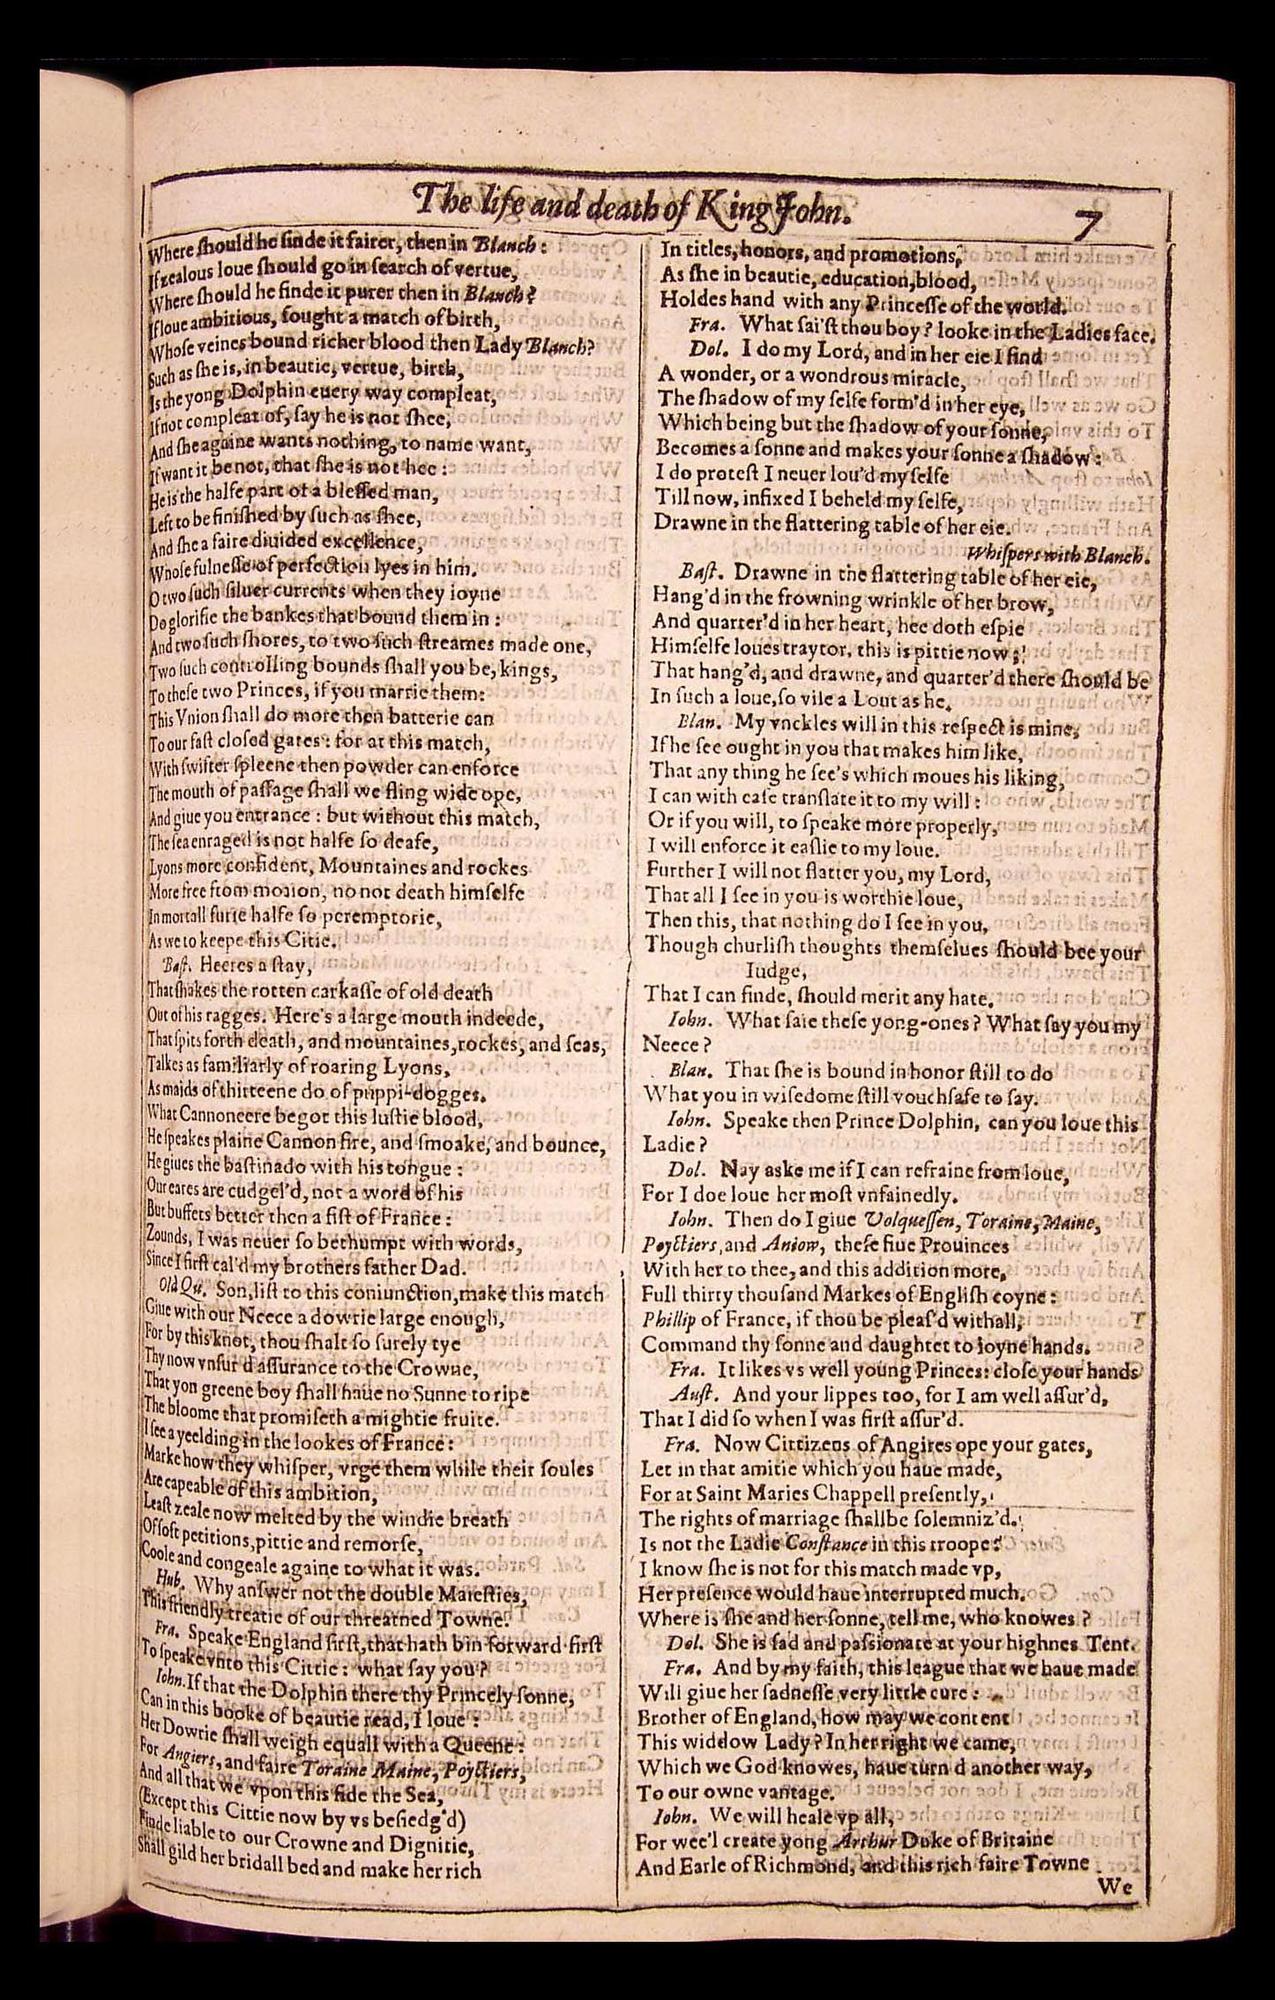 The life and death of King John.
7
Where should he finde it fairer, then in Blanch:
If zealous loue should go in search of vertue,
Where should he finde it purer then in Blanch?
If loue ambitious, sought a match of birth,
Whose veines bound richer blood then Lady Blanch?
Such as she is, in beautie, vertue, birth,
Is the yong Dolphin euery way compleat,
If not compleat of, say he is not shee,
And she againe wants nothing, to name want,
If want it be not, that she is not hee:
He is the halfe part of a blessed man,
Left to be finished by such as shee,
And she a faire diuided excellence,
Whose fulnesse of perfection lyes in him.
O two such siluer currents when they ioyne
Do glorifie the bankes that bound them in:
And two such shores, to two such streames made one,
Two such controlling bounds shall you be, kings,
To these two Princes, if you marrie them:
This Vnion shall do more then batterie can
To our fast closed gates: for at this match,
With swifter spleene then powder can enforce
The mouth of passage shall we fling wide ope,
And giue you entrance: but without this match,
The sea enraged is not halfe so deafe,
Lyons more confident, Mountaines and rockes
More free from motion, no not death himselfe
In mortall furie halfe so peremptorie,
As we to keepe this Citie.
Bast. Heeres a stay,
That shakes the rotten carkasse of old death
Out of his ragges. Here's a large mouth indeede,
That spits forth death, and mountaines, rockes, and seas,
Talkes as familiarly of roaring Lyons,
As maids of thirteene do of puppi-dogges.
What Cannoneere begot this lustie blood,
He speakes plaine Cannon fire, and smoake, and bounce,
He giues the bastinado with his tongue:
Our eares are cudgel'd, not a word of his
But buffets better then a fist of France:
Zounds, I was neuer so bethumpt with words,
Since I first cal'd my brothers father Dad.
Old Qu. Son, list to this coniunction, make this match
Giue with our Neece a dowrie large enough,
For by this knot, thou shalt so surely tye
Thy now vnsur'd assurance to the Crowne,
That yon greene boy shall haue no Sunne to ripe
The bloome that promiseth a mightie fruite.
I see a yeelding in the lookes of France:
Marke how they whisper, vrge them while their soules
Are capeable of this ambition,
Least zeale now melted by the windie breath
Of soft petitions, pittie and remorse,
Coole and congeale againe to what it was.
Hub. Why answer not the double Maiesties,
This friendly treatie of our threatned Towne.
Fra. Speake England first, that hath bin forward first
To speake vnto this Cittie: what say you?
Iohn. If that the Dolphin there thy Princely sonne,
Can in this booke of beautie read, I loue:
Her Dowrie shall weigh equall with a Queene:
For Angiers, and faire Toraine Maine, Poyctiers,
And all that we vpon this side the Sea,
(Except this Cittie now by vs besiedg'd)
Finde liable to our Crowne and Dignitie,
Shall gild her bridall bed and make her rich
In titles, honors, and promotions,
As she in beautie, education, blood,
Holdes hand with any Princesse of the world.
Fra. What sai'st thou boy? looke in the Ladies face.
Dol. I do my Lord, and in her eie I find
A wonder, or a wondrous miracle,
The shadow of my selfe form'd in her eye,
Which being but the shadow of your sonne,
Becomes a sonne and makes your sonne a shadow:
I do protest I neuer lou'd my selfe
Till now, infixed I beheld my selfe,
Drawne in the flattering table of her eie.
Whispers with Blanch.
Bast. Drawne in the flattering table of her eie,
Hang'd in the frowning wrinkle of her brow,
And quarter'd in her heart, hee doth espie
Himselfe loues traytor, this is pittie now;
That hang'd, and drawne, and quarter'd there should be
In such a loue, so vile a Lout as he.
Blan. My vnckles will in this respect is mine,
If he see ought in you that makes him like,
That any thing he see's which moues his liking,
I can with ease translate it to my will:
Or if you will, to speake more properly,
I will enforce it easlie to my loue.
Further I will not flatter you, my Lord,
That all I see in you is worthie loue,
Then this, that nothing do I see in you,
Though churlish thoughts themselues should bee your
Iudge,
That I can finde, should merit any hate.
Iohn. What saie these yong-ones? What say you my
Neece?
Blan. That she is bound in honor still to do
What you in wisedome still vouchsafe to say.
Iohn. Speake then Prince Dolphin, can you loue this
Ladie?
Dol. Nay aske me if I can refraine from loue,
For I doe loue her most vnfainedly.
Iohn. Then do I giue Volquessen, Toraine, Maine,
Poyctiers, and Aniow, these fiue Prouinces
With her to thee, and this addition more,
Full thirty thousand Markes of English coyne:
Phillip of France, if thou be pleas'd withall,
Command thy sonne and daughtet to ioyne hands.
Fra. It likes vs well young Princes: close your hands
Aust. And your lippes too, for I am well assur'd,
That I did so when I was first assur'd.
Fra. Now Cittizens of Angires ope your gates,
Let in that amitie which you haue made,
For at Saint Maries Chappell presently,
The rights of marriage shallbe solemniz'd.
Is not the Ladie Constance in this troope?
I know she is not for this match made vp,
Her presence would haue interrupted much.
Where is she and her sonne, tell me, who knowes?
Dol. She is sad and passionate at your highnes Tent.
Fra. And by my faith, this league that we haue made
Will giue her sadnesse very little cure:
Brother of England, how may we content
This widdow Lady? In her right we came,
Which we God knowes, haue turn'd another way,
To our owne vantage.
Iohn. We will heale vp all,
For wee'l create yong Arthur Duke of Britaine
And Earle of Richmond, and this rich faire Towne
We